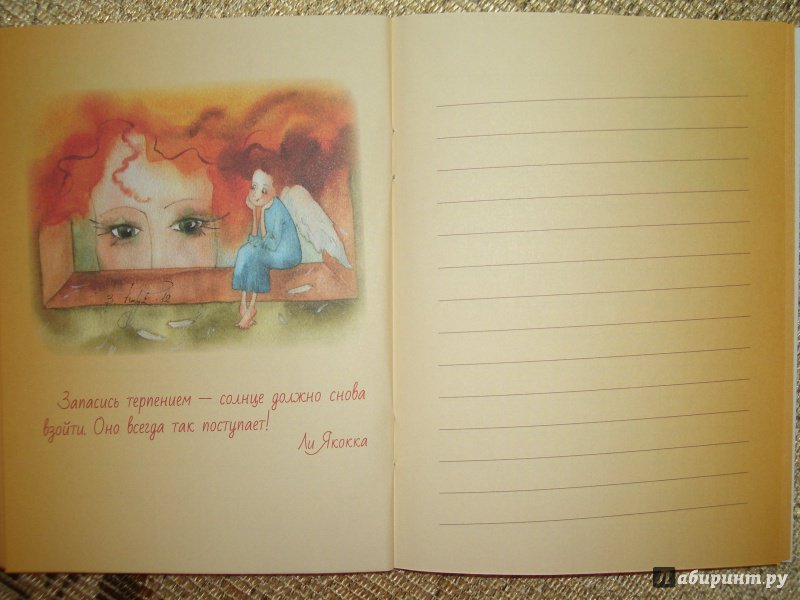 Запасись терпением — солнце должно снова
взойти. Оно всегда так поступает!
Ли Якокка
Лабиринт.ру